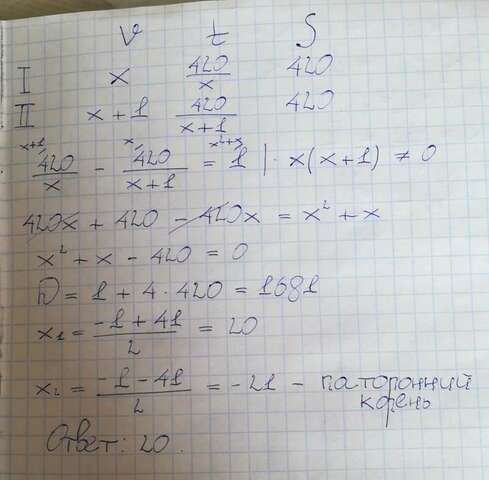 v t S
I x 420/x 420
II x + 1 420/(x+1) 420
x+1 x x²+x
420/x - 420/(x+1) = 1 | · x(x+1) ≠ 0
420x + 420 - 420x = x² + x
x² + x - 420 = 0
D = 1 + 4 · 420 = 1681
x₁ = (-1 + 41)/2 = 20
x₂ = (-1 - 41)/2 = -21 - паторонний
корень
Ответ: 20.